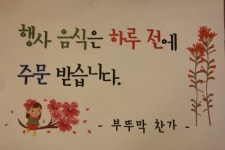 행사 음식은 하루 전에
주문 받습니다.
- 부뚜막 찬가 -